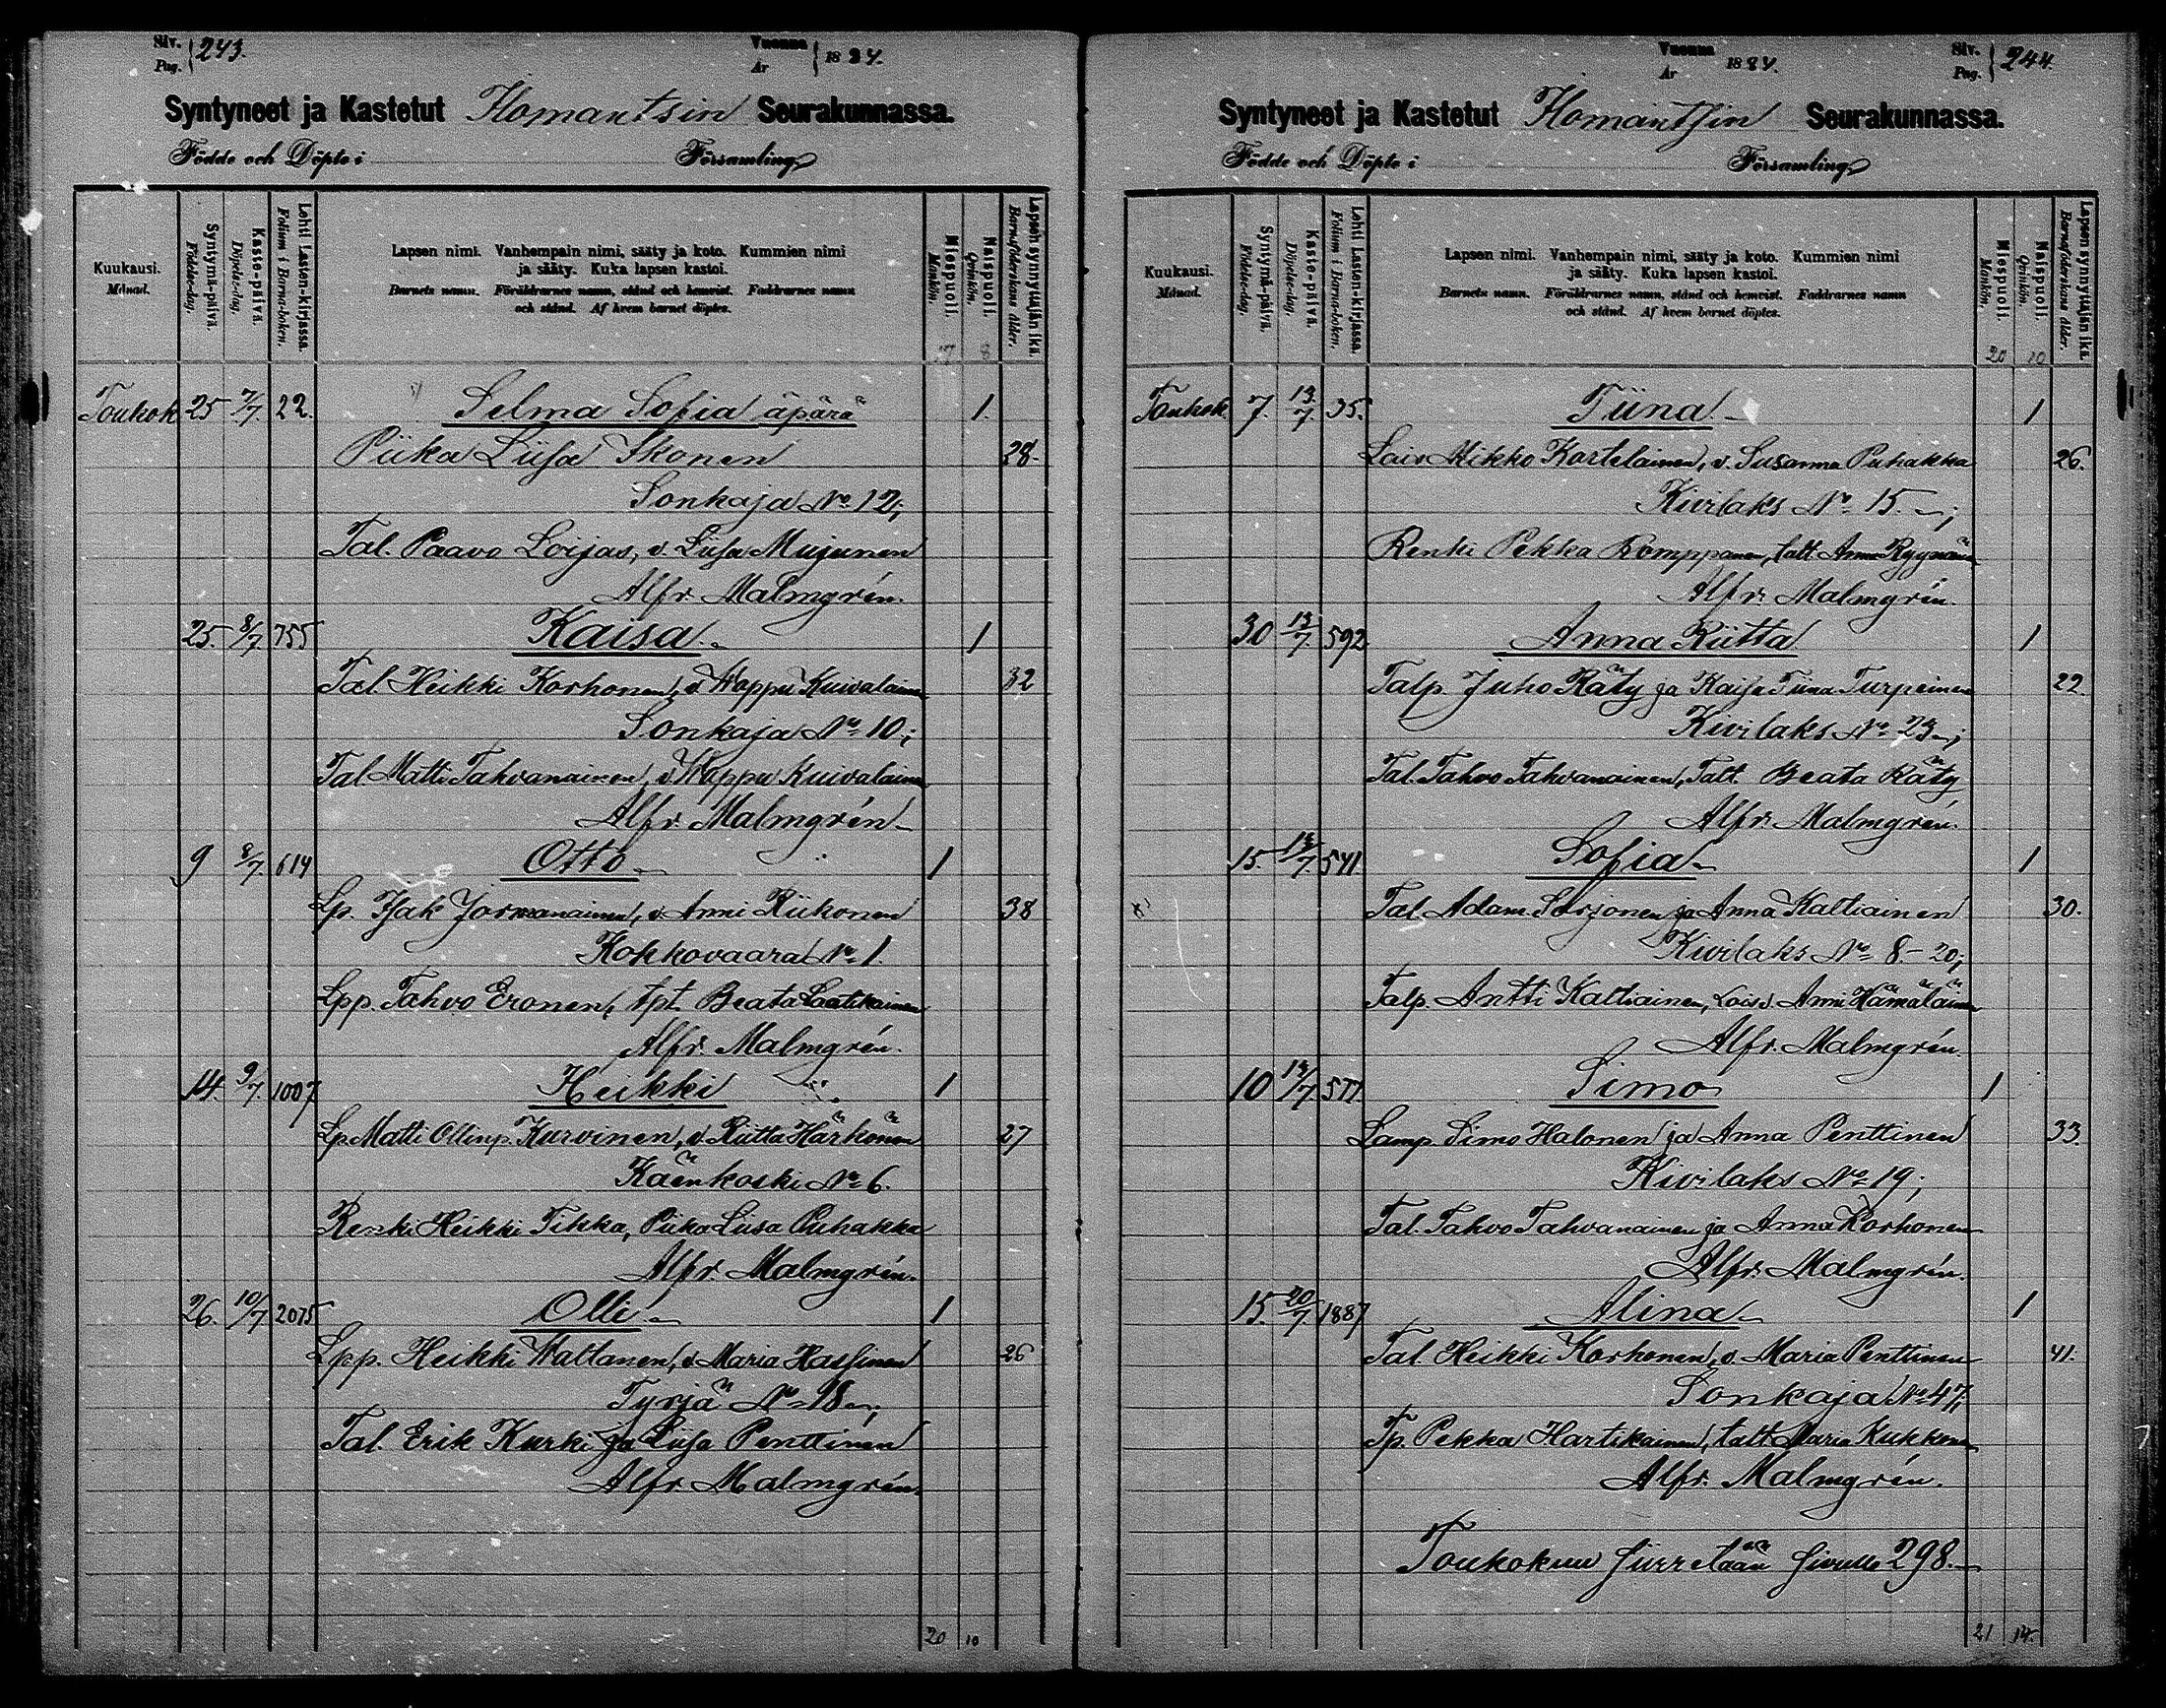 Siv. 243.
Pag.
Vuonna 1884.
År
Syntyneet ja Kastetut Ilomantsin Seurakunnassa.
Födde och Döpte i Församling
Kuukausi.
Månad.
Syntymä-päivä.
Födelse-dag.
Kaste-päivä.
Döpelse-dag.
Lehti Lasten-kirjassa.
Folium i Barna-boken.
Lapsen nimi. Vanhempain nimi, sääty ja koto. Kummien nimi
ja sääty. Kuka lapsen kastoi.
Barnets namn. Föräldrarnes namn, stånd och hemvist. Faddrarnes namn
och stånd. Af hvem barnet döptes.
Miespuoli.
Mankön.
Naispuoli.
Qvinkön.
Lapsen synnyttäjän ikä.
Barnaföderskans ålder.
17 8
Toukok 25 7/7. 22. Selma Sofia äpärä 1.
Piika Liisa Ikonen 28.
Sonkaja No 12;
Tal. Paavo Loijas, v. Liisa Mujunen
Alfr. Malmgrén.
25. 8/7. 755 Kaisa. 1
Tal. Heikki Korhonen, v. Wappu Kuivalainen 32
Sonkaja No 10;
Tal. Matti Tahvanainen, v. Wappu Kuivalainen
Alfr. Malmgrén
9 8/7. 614 Otto 1
Lp. Isak Jormanainen, v. Anni Riikonen 38
Kokkovaara No 1.
Lpp. Tahvo Eronen, tpt. Beata Laatikainen
Alfr. Malmgrén.
14. 9/7. 1007 Heikki 1
Lp. Matti Ollinp. Kurvinen, v. Riitta Härkönen 27
Käenkoski No 6.
Renki Heikki Tikka, Piika Liisa Puhakka
Alfr. Malmgrén.
26. 10/7. 2075 Olli 1
Lpp. Heikki Waltanen, v. Maria Hassinen 26
Tyrjä No 18;
Tal. Erik Kurki ja Liisa Penttinen
Alfr Malmgrén.
20 10
Vuonna 1884.
År
Siv. 244.
Pag.
Syntyneet ja Kastetut Ilomantsin Seurakunnassa.
Födde och Döpte i Församling
Kuukausi.
Månad.
Syntymä-päivä.
Födelse-dag.
Kaste-päivä.
Döpelse-dag.
Lehti Lasten-kirjassa.
Folium i Barna-boken.
Lapsen nimi. Vanhempain nimi, sääty ja koto. Kummien nimi
ja sääty. Kuka lapsen kastoi.
Barnets namn. Föräldrarnes namn, stånd och hemvist. Faddrarnes namn
och stånd. Af hvem barnet döptes.
Miespuoli.
Mankön.
Naispuoli.
Qvinkön.
Lapsen synnyttäjän ikä.
Barnaföderskans ålder.
20 10
Toukok 7. 13/7. 35. Tiina 1
Lois Mikko Kortelainen, v. Susanna Puhakka 26.
Kivilaks No 15.;
Renki Pekka Romppanen, talt. Anna Ryynänen
Alfr. Malmgrén.
30 13/7. 592 Anna Riitta 1
Talp. Juho Räty ja Kaisa Tiina Turpeinen 22.
Kivilaks No 23;
Tal. Tahvo Tahvanainen, Talt. Beata Räty
Alfr. Malmgrén.
15. 13/7. 541. Sofia 1
Tal. Adam Sarjonen ja Anna Kaltiainen 30.
Kivilaks No 8.-20;
Talp. Antti Kaltiainen, Lois v. Anni Hämäläinen
Alfr. Malmgrén.
10 13/7. 577. Simo 1
Lamp. Simo Halonen ja Anna Penttinen 33.
Kivilaks No 19;
Tal. Tahvo Tahvanainen ja Anna Korhonen
Alfr. Malmgrén.
15. 20/7. 1887 Alina 1
Tal. Heikki Korhonen, v. Maria Penttinen 41.
Sonkaja No 47;
Tp. Pekka Hartikainen, talt Maria Kukkonen
Alfr. Malmgrén.
Toukokuu siirretään sivulle 298.
21 14.